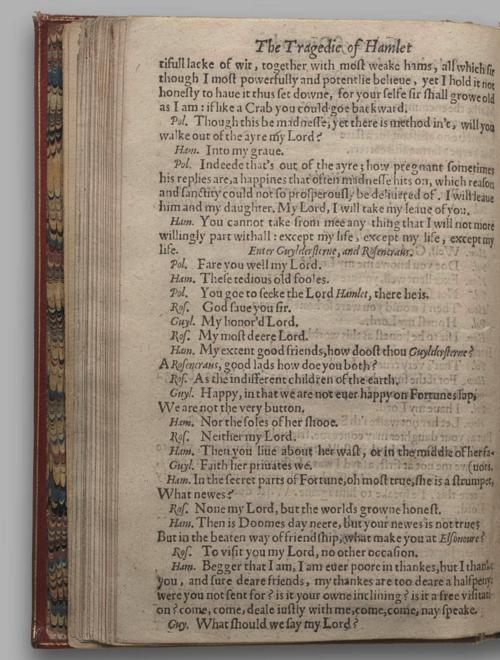 The Tragedie of Hamlet
tifull lacke of wit, together with most weake hams, all which sir
though I most powerfully and potentlie beleeue, yet I hold it not
honesty to haue it thus set downe, for your selfe sir shall growe old
as I am: if like a Crab you could goe backward.
Pol. Though this be madnesse, yet there is method in't, will you
walke out of the ayre my Lord?
Ham. Into my graue.
Pol. Indeede that's out of the ayre; how pregnant sometimes
his replies are, a happines that often madnesse hits on, which reason
and sanctity could not so prosperously be deliuered of. I will leaue
him and my daughter. My Lord, I will take my leaue of you.
Ham. You cannot take from mee any thing that I will not more
willingly part withall: except my life, except my life, except my
life. Enter Guyldersterne, and Rosencraus.
Pol. Fare you well my Lord.
Ham. These tedious old fooles.
Pol. You goe to seeke the Lord Hamlet, there he is.
Ros. God saue you sir.
Guyl. My honor'd Lord.
Ros. My most deere Lord.
Ham. My extent good friends, how doost thou Guyldersterne?
A Rosencraus, good lads how doe you both?
Ros. As the indifferent children of the earth.
Guyl. Happy, in that we are not euer happy on Fortunes lap,
We are not the very button.
Ham. Nor the soles of her shooe.
Ros. Neither my Lord.
Ham. Then you liue about her wast, or in the middle of her fa-
Guyl. Faith her priuates we. (uors.
Ham. In the secret parts of Fortune, oh most true, she is a strumpet,
What newes?
Ros. None my Lord, but the worlds growne honest.
Ham. Then is Doomes day neere, but your newes is not true;
But in the beaten way of friendship, what make you at Elsonoure?
Ros. To visit you my Lord, no other occasion.
Ham. Begger that I am, I am euer poore in thankes, but I thanke
you, and sure deare friends, my thankes are too deare a halfpeny:
were you not sent for? is it your owne inclining? is it a free visitati-
on? come, come, deale iustly with me, come, come, nay speake.
Guy. What should we say my Lord?